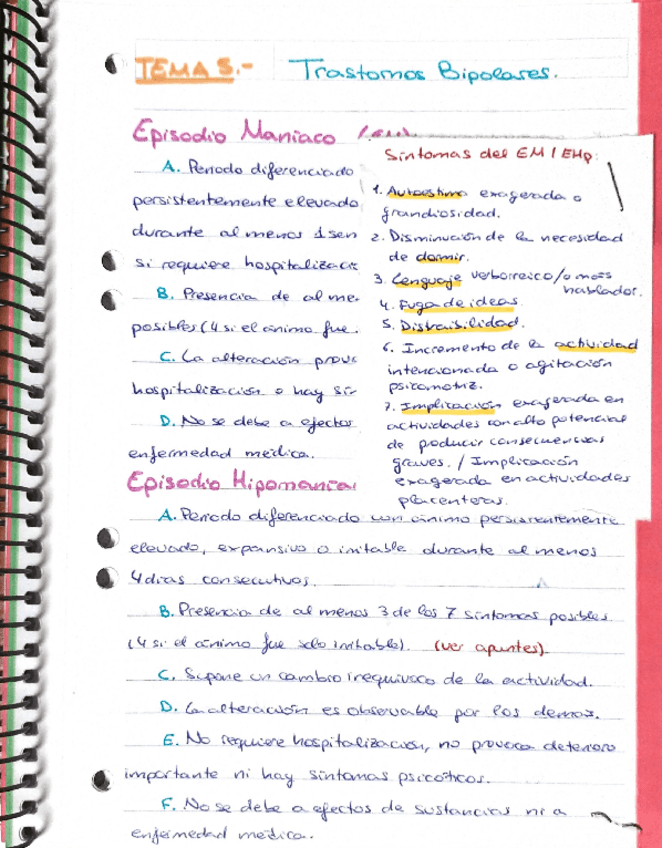 TEMA 5.- Trastornos Bipolares.
Episodio Maníaco (EM).
A. Periodo diferenciado
persistentemente elevado
durante al menos 1 sem
si requiere hospitalizaci
B. Presencia de al me
posibles (4 si el ánimo fue
C. La alteración provo
hospitalización o hay sín
D. No se debe a efectos
enfermedad médica.
Síntomas del EM / EHp:
1. Autoestima exagerada o
grandiosidad.
2. Disminución de la necesidad
de dormir.
3. Lenguaje verborreico/o más
hablador.
4. Fuga de ideas.
5. Distraibilidad.
6. Incremento de la actividad
intencionada o agitación
psicomotriz.
7. Implicación exagerada en
actividades con alto potencial
de producir consecuencias
graves. / Implicación
exagerada en actividades
placenteras.
Episodio Hipomaníac
A. Periodo diferenciado con ánimo persistentemente
elevado, expansivo o irritable durante al menos
4 días consecutivos.
B. Presencia de al menos 3 de los 7 síntomas posibles
(4 si el ánimo fue sólo irritable). (ver apuntes).
C. Supone un cambio inequívoco de la actividad.
D. La alteración es observable por los demás.
E. No requiere hospitalización, no provoca deterioro
importante ni hay síntomas psicóticos.
F. No se debe a efectos de sustancias ni a
enfermedad médica.